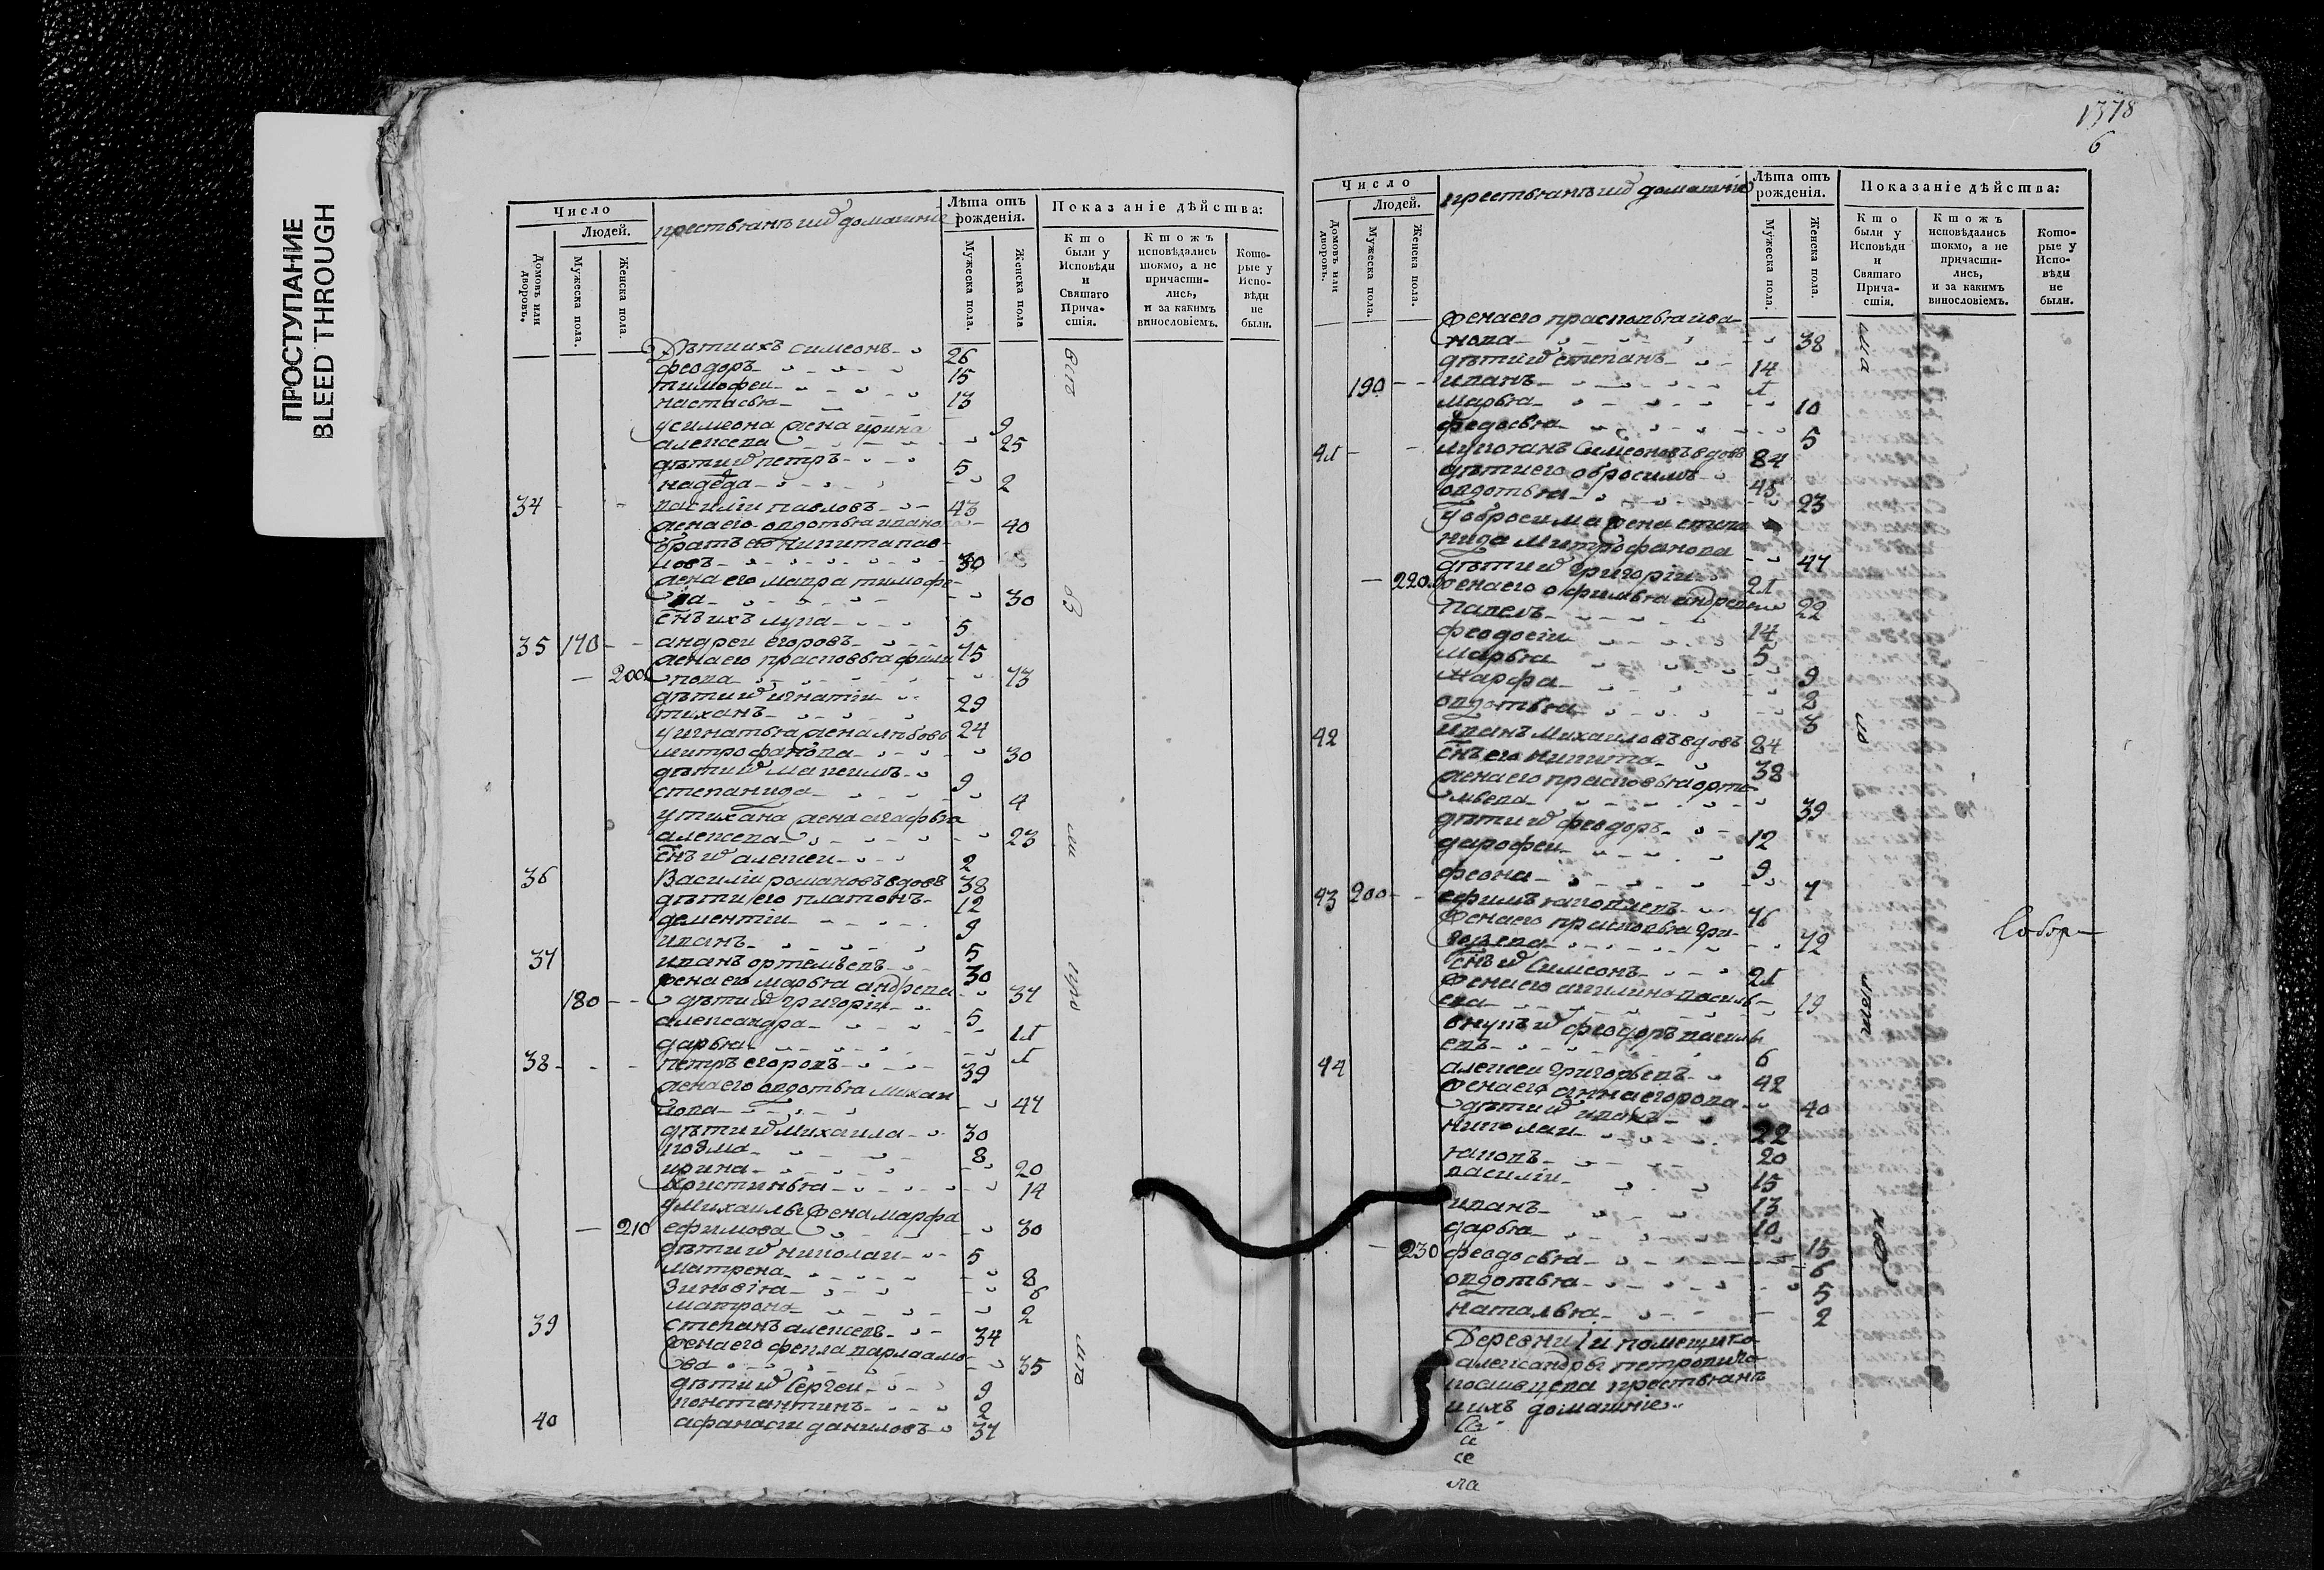 ПРОСТУПАНИЕ
BLEED THROUGH
Число
Людей.
Домовъ или дворовъ.
Мужеска пола.
Женска пола
крестьянъ и иѿ домашніе
Лѣта отъ рожденія.
Мужеска пола.
Женска пола
Показаніе дѣйства:
Кто были у Исповѣди и Святаго Прича-стія.
Ктожъ исповѣдались токмо, а не причасти-лись, и за какимъ винословіемъ.
Кото-рые у Испо-вѣди не были.
Дѣти ихъ симеонъ 26
феодоръ 15
тимофеи 13
настасья 9
у симеона жена ирина
алексева 25
дѣти иѿ петръ 5
надѣда 2
34 василіи павловъ 43
жена его овдотья ивано 40
братъ его никита пав-
ловъ 30
жена его мавра тимофе-
ва 30
снъ ихъ лука 5
35 170 андреи егоровъ 75
жена его прасковья фили
200 пова 73
дѣти иѿ игнатіи 29
тиханъ 24
у игнатья жена любовь
митрофанова 30
дѣти иѿ максимъ 9
степанида 4
у тихана жена агафья
алексева 23
снъ иѿ алексеи 2
36 Василіи романовъ вдовъ 38
дѣти его платонъ 12
дементіи 9
иванъ 5
37 иванъ ортемьевъ 30
жена его марья андреева 37
180 дѣти иѿ григоріи 5
александра 11
дарья 1
38 петръ егоровъ 39
жена его овдотья михаи
лова 47
дѣти иѿ михаила 30
козма 8
ирина 20
христинья 14
у михаилы жена марфа
210 ефимова 30
дѣти иѿ николаи 5
матрена 8
зиновія 6
матрона 2
39 степанъ алексевъ 34
жена его фекла варлаамо
ва 35
дѣти иѿ сергеи 9
константинъ 2
40 афанасіи даниловъ 37
1378
6
Число
Людей.
Домовъ или дворовъ.
Мужеска пола.
Женска пола.
крестьянъ и иѿ домашніе
Лѣта отъ рожденія.
Мужеска пола.
Женска пола.
Показаніе дѣйства:
Кто были у Исповѣди и Святаго Прича-стія.
Ктожъ исповѣдались токмо, а не причасти-лись, и за какимъ винословіемъ.
Кото-рые у Испо-вѣди не были.
жена его прасковья ива-
нова 38
дѣти иѿ степанъ 14
190 иванъ 1
марья 10
федосья 5
41 лукоянъ Симеоновъ вдовъ 84
дѣти его обросимъ 45
овдотья 23
у обросима жена степа
нида митрофанова 47
дѣти иѿ григоріи 21
220 жена его офимья андреева 22
павелъ 14
феодосіи 5
марья 9
марфа 8
овдотья 3
42 иванъ михаиловъ вдовъ 84
снъ его никита 38
жена его прасковья орте
мьева 39
дѣти иѿ феодоръ 12
дарофеи 9
феона 7
43 200 ефимъ яковлевъ 76
жена его прасковья гри-
горева 72
снъ иѿ Симеонъ 21
жена его акилина василь-
ева 19
внукъ иѿ феодоръ василь
евъ 6
44 алексеи григорьевъ 42
жена его анна егорова 40
дѣти иѿ иванъ 22
николаи 20
яковъ 15
василіи 13
иванъ 10
дарья 15
230 феодосья 6
овдотья 5
наталья 2
Деревни
александры петровича
крестьянъ
и ихъ домашніе
се
се
ла